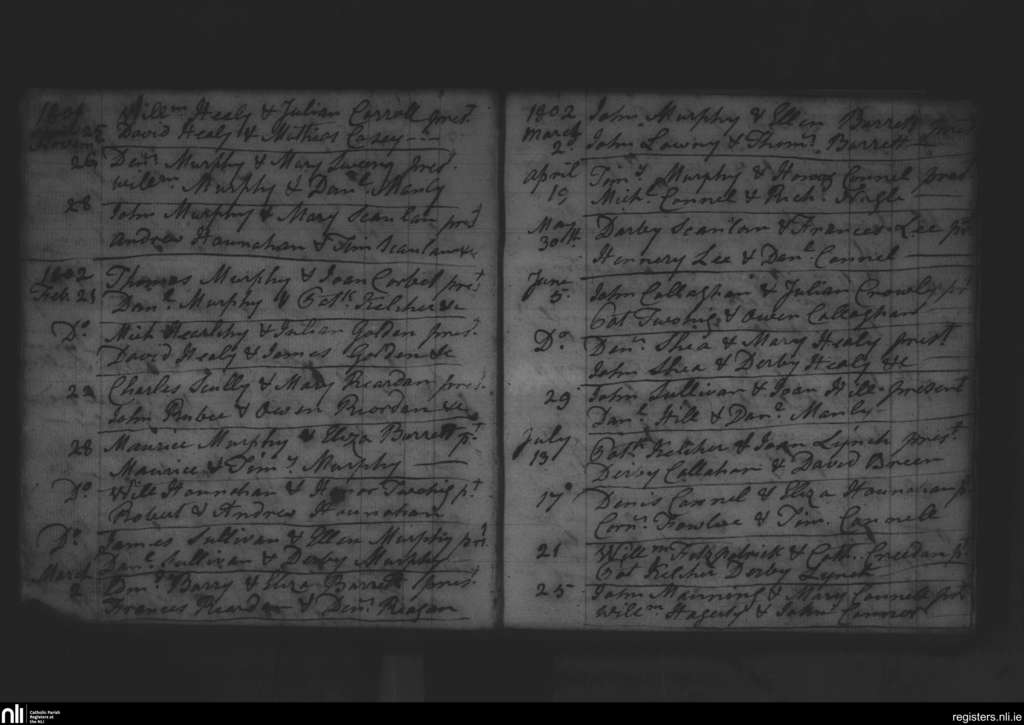 1801 Will.m Healy & Julian Carroll pres.t
Novem 25 David Healy & Mathias Casey
26 Den.s Murphy & Mary Sweny pres.t
Will.m Murphy & Dan.l Manly
28 John Murphy & Mary Scanlan pres.t
Andrew Hounahan & Tim Scanlan &c
1802 Thomas Murphy & Joan Corbet pres.t
Feb. Dan.l Murphy & Pat.k Kelcher &c
D.o Mich & Julian Goldan pres.t
David Healy & James Golden &c
Charles Scully & Mary Reardan pres.t
John & Owen Riordan &c
28 Maurice Murphy & Eliza Barrett p.t
Maurice & Tim.y Murphy
D.o Will Hounahan & Twohig p.t
Robert & Andrew Hounahan
D.o James Sullivan & Ellen Murphy pre.t
Dan.l Sullivan & Derby Murphy
March 2 Barry & Eliza Barrett pres.t
Frances Reardan & Den.s Reagan
1802 John Murphy & Ellen Barrett pres.t
March 2 John Lowny & Thom.s Barrett
april Tim.y Murphy & Connel pres.t
19 Mich.l Connel & Rich.d Nagle
May Darby Scanlan & Frances Lee p.t
30th Hennery Lee & Den.s Connel
June 5 John Callaghan & Julian Crowly p.t
Pat Twohig & Owen Callaghan
D.o Den.s Shea & Mary Healy pres.t
John Shea & Derby Healy &c
29 John Sullivan & Joan Hill present
Dan.l Hill & Dan.l Manly
July Pat.k Kelcher & Joan Lynch pres.t
13 Derby Callahan & David Breen
17 Denis Connel & Eliza Hounahan p.t
Corn.s & Tim. Connell
21 Will.m Fitzpatrick & Cath. Creedan p.t
Pat Kelcher Derby Lynch
25 John Manning & Mary Connell pres.t
Will.m Hagerty & John Connor
nli Catholic Parish
Registers at
the NLI
registers.nli.ie